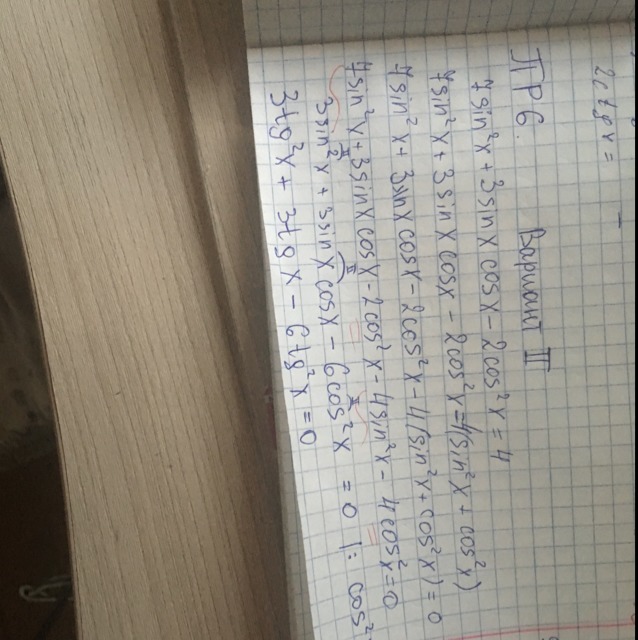 2ctgx =
ПР6 Вариант II
7sin²x + 3sinx cosx - 2cos²x = 4
7sin²x + 3sinx cosx - 2cos²x = 4(sin²x + cos²x)
7sin²x + 3sinx cosx - 2cos²x - 4(sin²x + cos²x) = 0
7sin²x + 3sinx cosx - 2cos²x - 4sin²x - 4cos²x = 0
3sin²x + 3sinx cosx - 6cos²x = 0 |: cos²
3tg²x + 3tgx - 6tg²x = 0